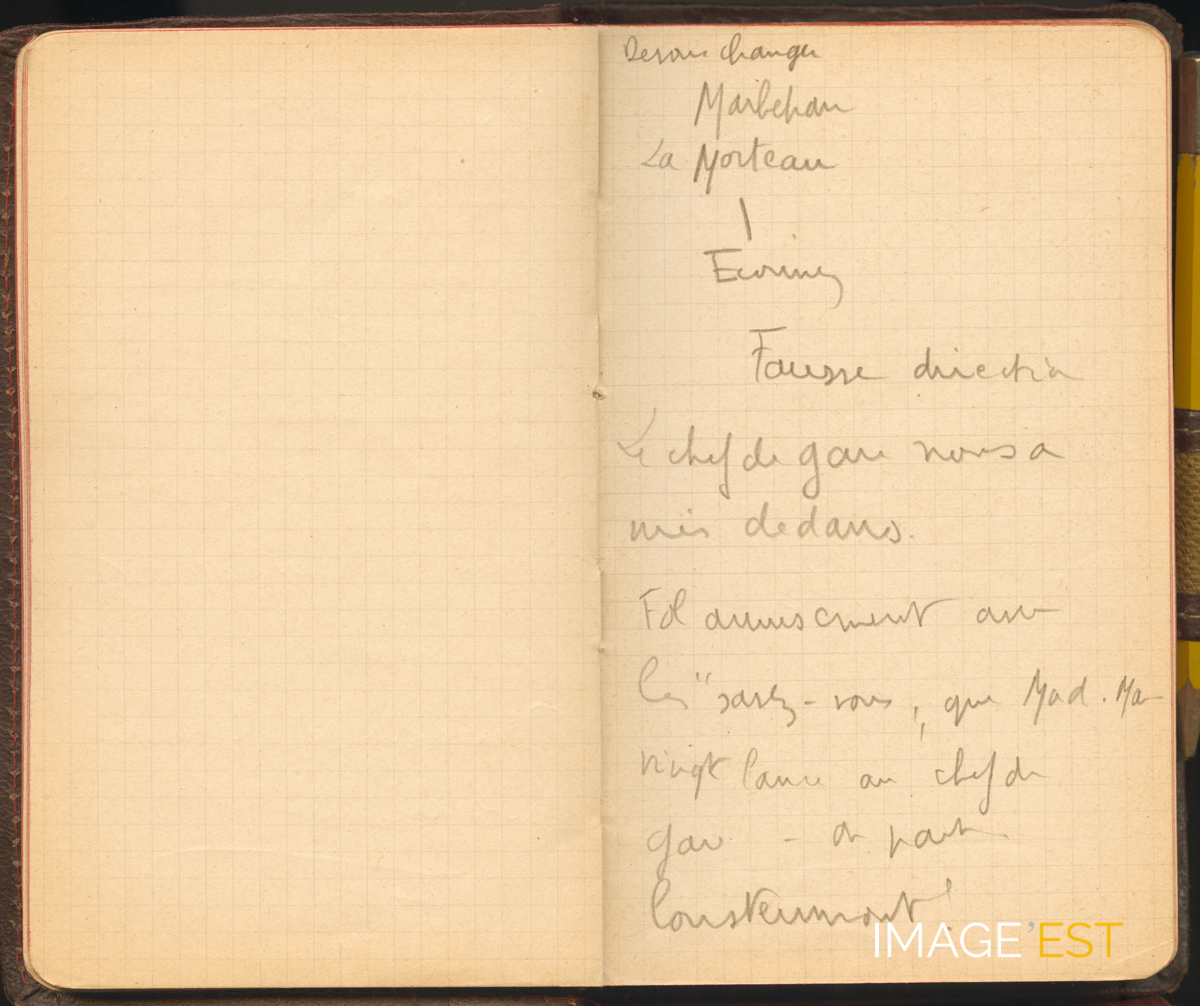 Devons changer
Marbehan
La Morteau
Ecouviez
Fausse direction
Le chef de gare nous a
mis dedans.
Fol amusement avec
les "savez-vous", que Mad. Ma-
lance au chef de
gare - on part
IMAGE'EST